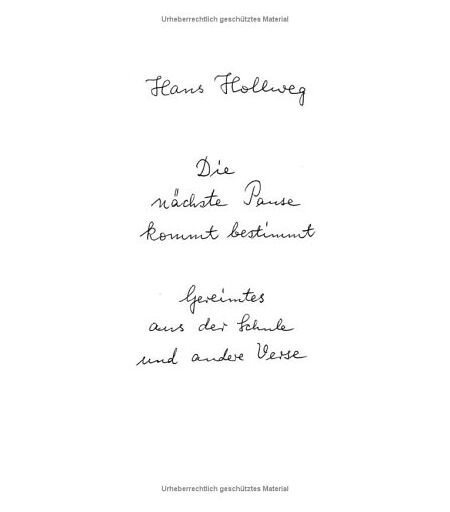 Urheberrechtlich geschütztes Material
Hans Hollweg
Die
nächste Pause
kommt bestimmt
Gereimtes
aus der Schule
und andere Verse
Urheberrechtlich geschütztes Material